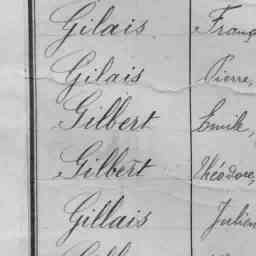 Gilais Franç
Gilais Pierre,
Gilbert Emile,
Gilbert Théodore,
Gillais Julien